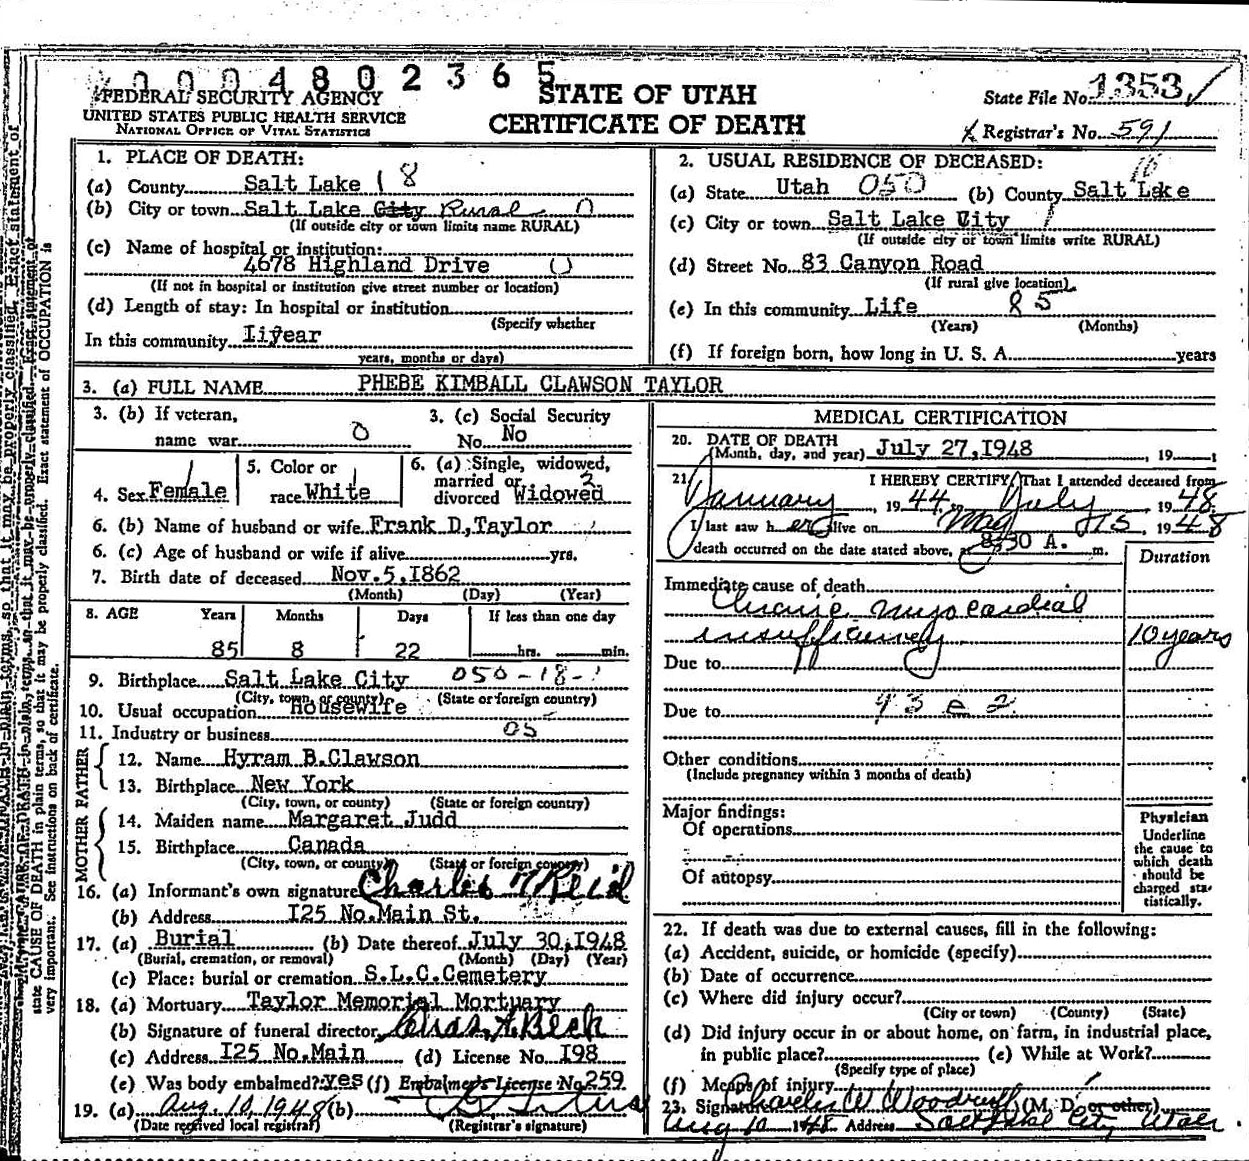 0004802365
FEDERAL SECURITY AGENCY
UNITED STATES PUBLIC HEALTH SERVICE
NATIONAL OFFICE OF VITAL STATISTICS
STATE OF UTAH
CERTIFICATE OF DEATH
State File No. 1353 ✓
Registrar's No. 591
1. PLACE OF DEATH:
(a) County Salt Lake 18
(b) City or town Salt Lake City Rural 0
(If outside city or town limits name RURAL)
(c) Name of hospital or institution:
4678 Highland Drive 0
(If not in hospital or institution give street number or location)
(d) Length of stay: In hospital or institution
(Specify whether
In this community Iiyear
years, months or days)
2. USUAL RESIDENCE OF DECEASED:
(a) State Utah 050 (b) County Salt Lake
(c) City or town Salt Lake City 1
(If outside city or town limits write RURAL)
(d) Street No. 83 Canyon Road
(If rural give location)
(e) In this community Life 85
(Years) (Months)
(f) If foreign born, how long in U. S. A. years
3. (a) FULL NAME PHEBE KIMBALL CLAWSON TAYLOR
3. (b) If veteran,
name war 0
3. (c) Social Security
No. No
4. Sex Female
5. Color or
race White
6. (a) Single, widowed,
married or 2
divorced Widowed
6. (b) Name of husband or wife Frank D,Taylor
6. (c) Age of husband or wife if alive yrs.
7. Birth date of deceased Nov.5,I862
(Month) (Day) (Year)
8. AGE Years Months Days If less than one day
85 8 22 hrs. min.
9. Birthplace Salt Lake City 050-18-1
(City, town, or county) (State or foreign country)
10. Usual occupation Housewife
11. Industry or business 05
FATHER
12. Name Hyram B.Clawson
13. Birthplace New York
(City, town, or county) (State or foreign country)
MOTHER
14. Maiden name Margaret Judd
15. Birthplace Canada
(City, town, or county) (State or foreign country)
16. (a) Informant's own signature Charles Reid
(b) Address I25 No.Main St.
17. (a) Burial (b) Date thereof July 30,I948
(Burial, cremation, or removal) (Month) (Day) (Year)
(c) Place: burial or cremation S.L.C.Cemetery
18. (a) Mortuary Taylor Memorial Mortuary
(b) Signature of funeral director Chas. A. Beck
(c) Address I25 No.Main (d) License No. I98
(e) Was body embalmed? yes (f) Embalmer's License No. 259
19. (a) Aug. 10, 1948 (b)
(Date received local registrar) (Registrar's signature)
MEDICAL CERTIFICATION
20. DATE OF DEATH
(Month, day, and year) July 27,I948, 19
21. I HEREBY CERTIFY, That I attended deceased from
January, 1944 July, 1948
I last saw her alive on May 15, 1948
death occurred on the date stated above, at 8:30 A. m.
Duration
Immediate cause of death
Chronic myocardial
insufficiency 10 years
Due to
Due to 93 e 2
Other conditions
(Include pregnancy within 3 months of death)
Major findings:
Of operations
Of autopsy
Physician
Underline
the cause to
which death
should be
charged sta-
tistically.
22. If death was due to external causes, fill in the following:
(a) Accident, suicide, or homicide (specify)
(b) Date of occurrence
(c) Where did injury occur?
(City or town) (County) (State)
(d) Did injury occur in or about home, on farm, in industrial place,
in public place? (e) While at Work?
(Specify type of place)
(f) Means of injury
23. Signature Charles W Woodruff (M. D. or other)
Aug 10 1948 Address Salt Lake City Utah
state CAUSE OF DEATH in plain terms, so that it may be properly classified. Exact statement of OCCUPATION is
very important. See instructions on back of certificate.